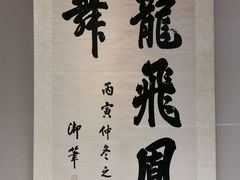 龍飛鳳
舞
丙寅仲冬之
御筆